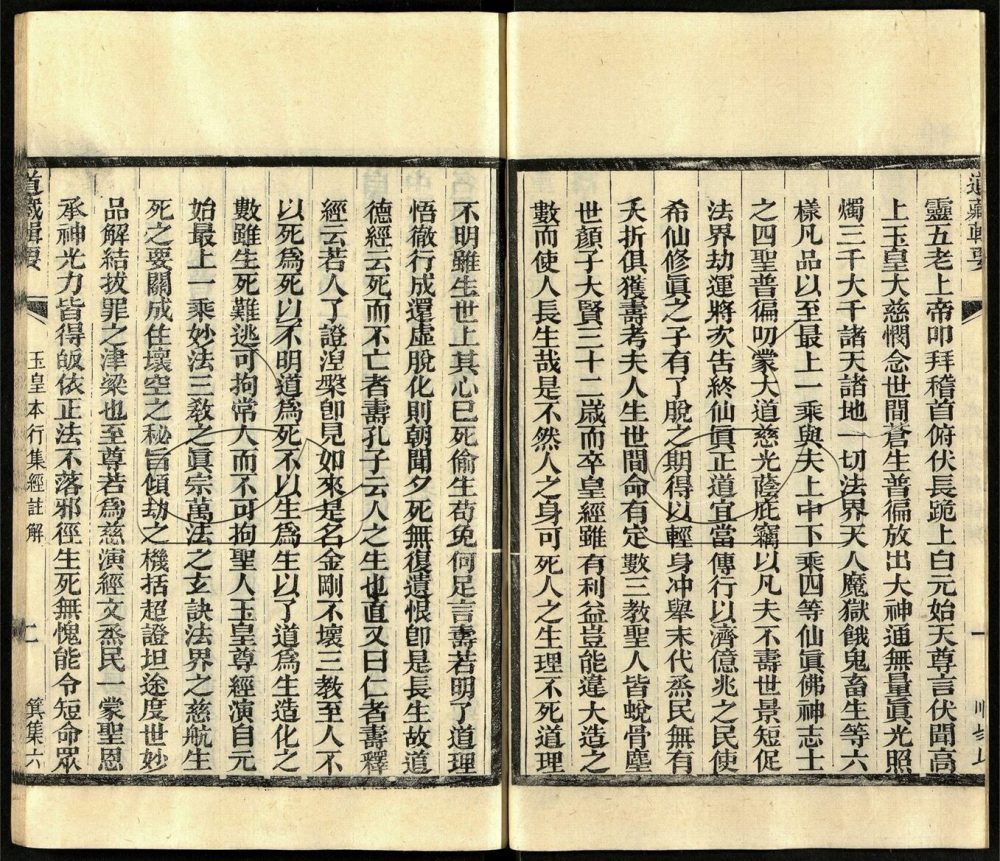 道藏輯要
靈五老上帝叩拜稽首俯伏長跪上白元始天尊言伏聞高
上玉皇大慈憫念世間蒼生普徧放出大神通無量眞光照
燭三千大千諸天諸地一切法界天人魔獄餓鬼畜生等六
樣凡品以至最上一乘與夫上中下乘四等仙眞佛神志士
之四聖普徧叨蒙大道慈光蔭庇竊以凡夫不壽世景短促
法界劫運將次告終仙眞正道宜當傳行以濟億兆之民使
希仙修眞之子有了脫之期得以輕身冲舉末代烝民無有
夭折俱獲壽考夫人生世間命有定數三教聖人皆蛻骨塵
世顏子大賢三十二歲而卒皇經雖有利益豈能違大造之
數而使人長生哉是不然人之身可死人之生理不死道理
不明雖生世上其心已死偷生苟免何足言壽若明了道理
悟徹行成還虛脫化則朝聞夕死無復遺恨卽是長生故道
德經云死而不亡者壽孔子云人之生也直又曰仁者壽釋
經云若人了證湼槃卽見如來是名金剛不壞三教至人不
以死爲死以不明道爲死不以生爲生以了道爲生造化之
數雖生死難逃可拘常人而不可拘聖人玉皇尊經演自元
始最上一乘妙法三教之眞宗萬法之玄訣法界之慈航生
死之要關成住壞空之秘旨傾劫之機括超證坦途度世妙
品解結拔罪之津梁也至尊若爲慈演經文烝民一蒙聖恩
承神光力皆得皈依正法不落邪徑生死無愧能令短命眾
道藏輯要
玉皇本行集經註解
二
箕集六